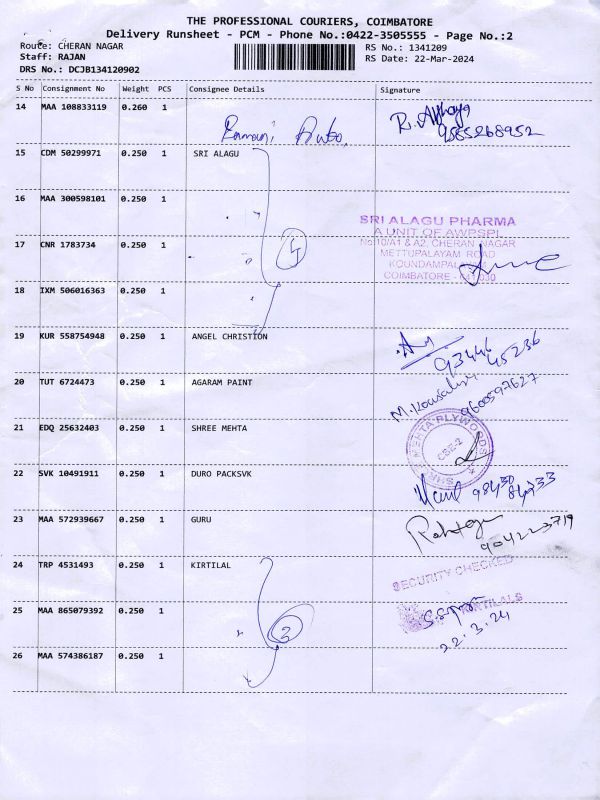 THE PROFESSIONAL COURIERS, COIMBATORE
Delivery Runsheet - PCM - Phone No.:0422-3505555 - Page No.:2
Route: CHERAN NAGAR
RS No.: 1341209
Staff: RAJAN
RS Date: 22-Mar-2024
DRS No.: DCJB134120902
S No Consignment No Weight PCS Consignee Details Signature
14 MAA 108833119 0.260 1
9585268952
15 CDM 50299971 0.250 1 SRI ALAGU
16 MAA 300598101 0.250 1
SRI ALAGU PHARMA
A UNIT OF AWPSPL
No:10/A1 & A2, CHERAN NAGAR
17 CNR 1783734 0.250 1 4
METTUPALAYAM ROAD
COIMBATORE
18 IXM 506016363 0.250 1
19 KUR 558754948 0.250 1 ANGEL CHRISTION
93446 45236
20 TUT 6724473 0.250 1 AGARAM PAINT
9600597627
21 EDQ 25632403 0.250 1 SHREE MEHTA
MEHTA PLYWOODS
CBE-2
22 SVK 10491911 0.250 1 DURO PACKSVK
23 MAA 572939667 0.250 1 GURU
24 TRP 4531493 0.250 1 KIRTILAL
SECURITY CHECKED
25 MAA 865079392 0.250 1 3
KIRTILALS
22.3.24
26 MAA 574386187 0.250 1